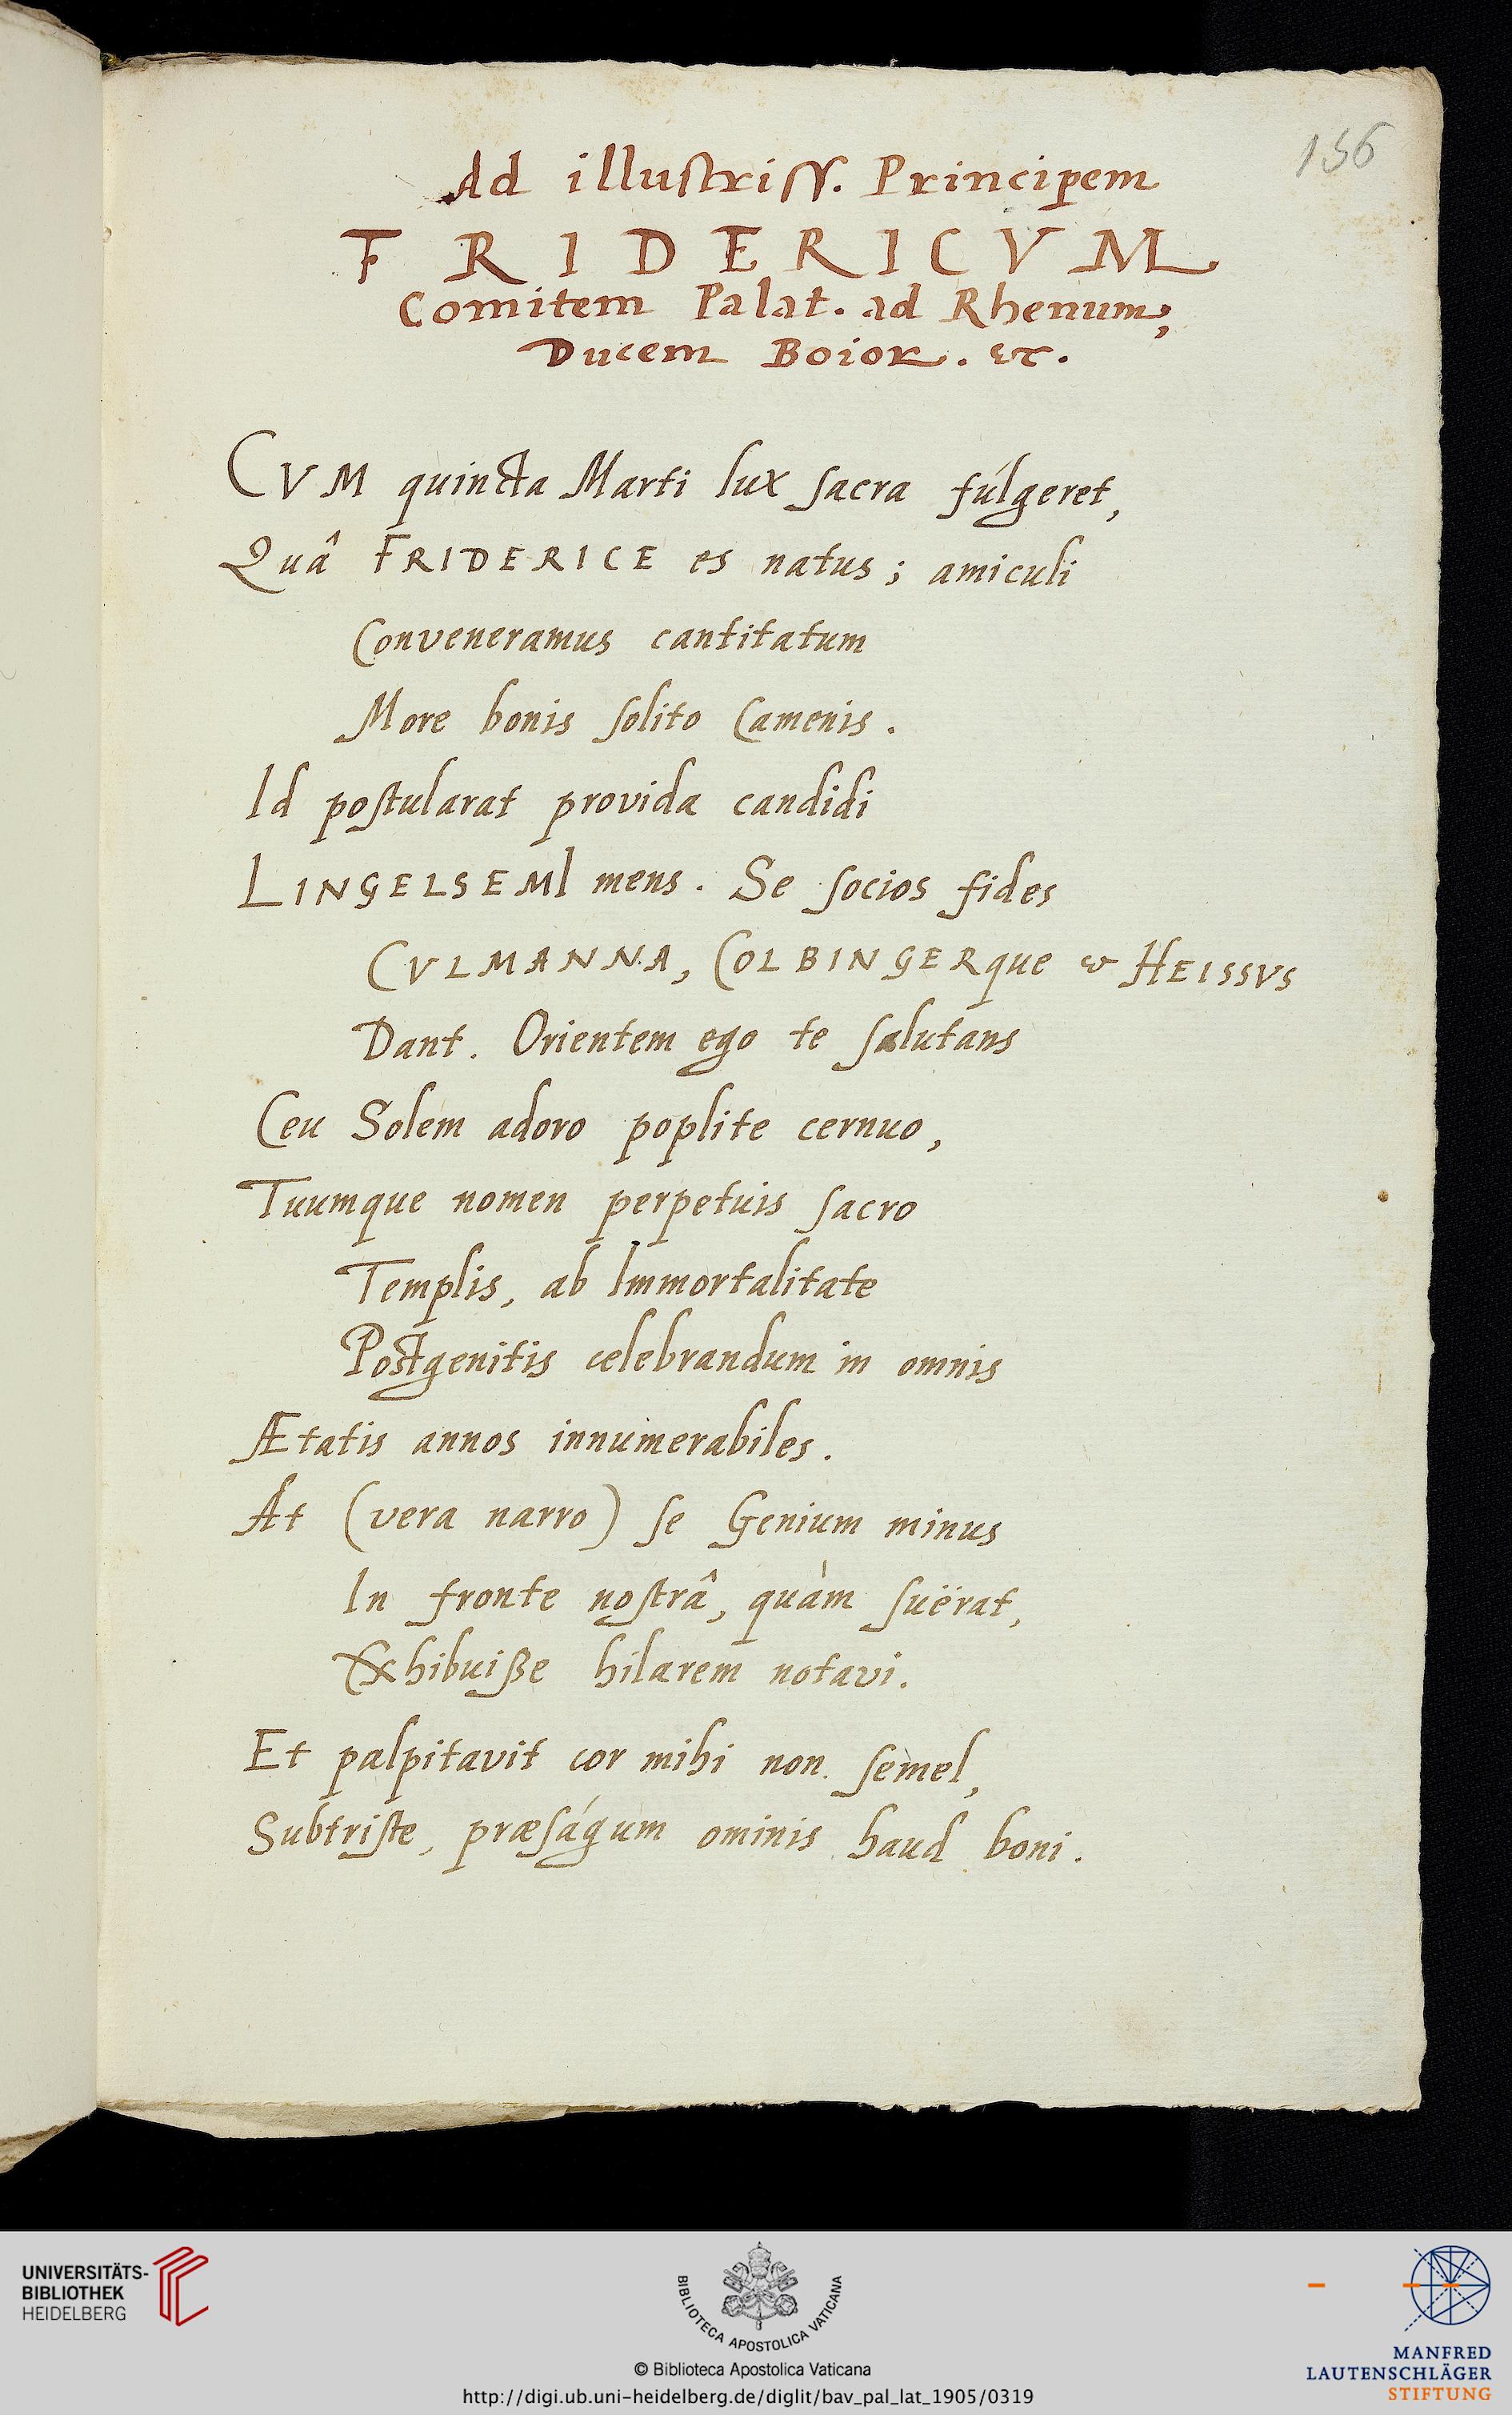 156
Ad illustriss. Principem
FRIDERICVM
Comitem Palat. ad Rhenum,
Ducem Boior. &c.
CVM quincta Marti lux sacra fúlgeret,
Quâ FRIDERICE es natus; amiculi
Conveneramus cantitatum
More bonis solito Camenis.
Id postularat provida candidi
LINGELSEMI mens. Se socios fides
CVLMANNA, COLBINGERque & HEISSVS
Dant. Orientem ego te salutans
Ceu Solem adoro poplite cernuo,
Tuumque nomen perpetuis sacro
Templis, ab Immortalitate
Postgenitis celebrandum in omnis
Ætatis annos innumerabiles.
At (vera narro) se Genium minus
In fronte nostrâ, quàm suërat,
Exhibuiße hilarem notavi.
Et palpitavit cor mihi non semel,
Subtriste, præságum ominis haud boni.
UNIVERSITÄTS-
BIBLIOTHEK
HEIDELBERG
BIBLIOTECA APOSTOLICA VATICANA
© Biblioteca Apostolica Vaticana
http://digi.ub.uni-heidelberg.de/diglit/bav_pal_lat_1905/0319
MANFRED
LAUTENSCHLÄGER
STIFTUNG